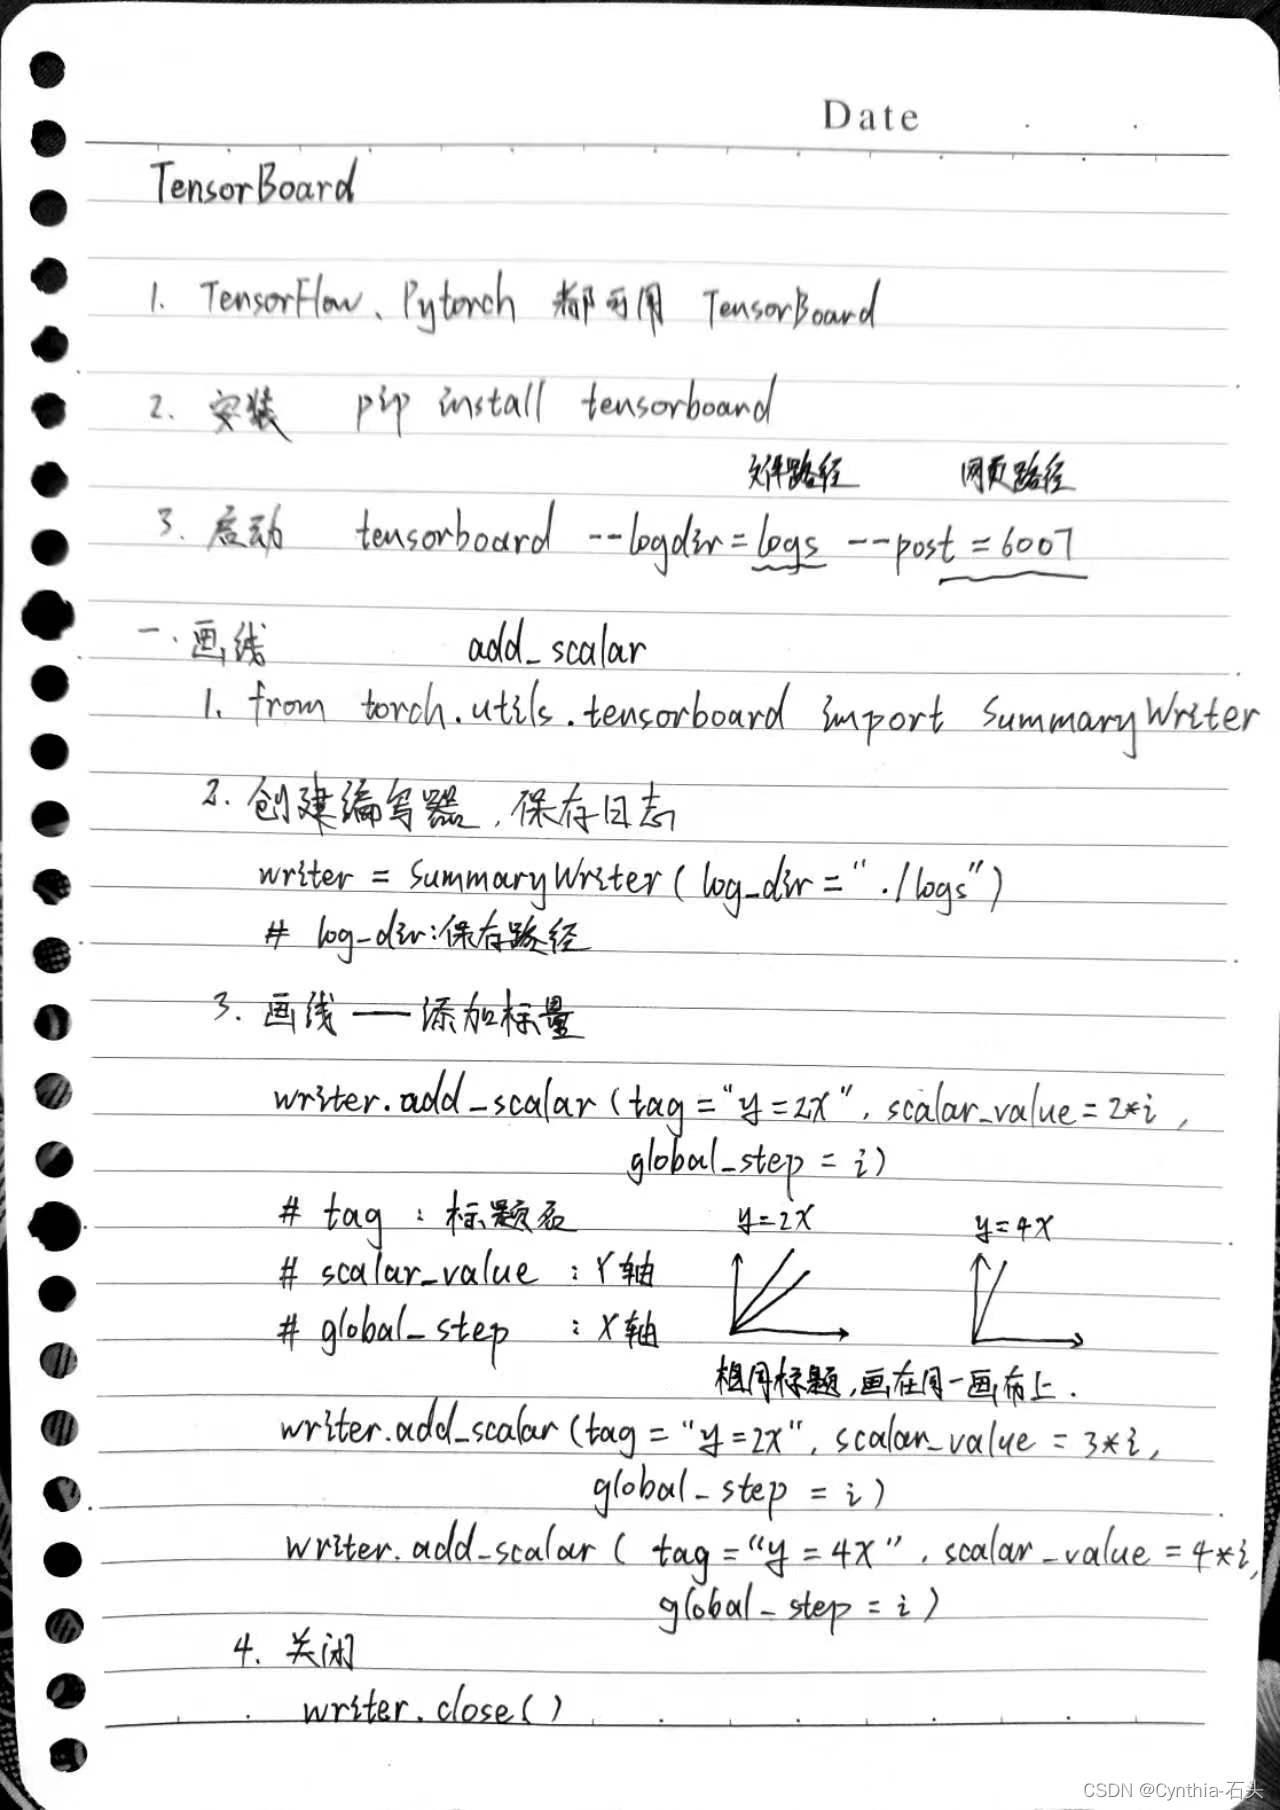 Date
TensorBoard
1. TensorFlow、Pytorch 都可用 TensorBoard
2. 安装 pip install tensorboard
文件路径 网页路径
3. 启动 tensorboard --logdir=logs --post=6007
一.画线 add_scalar
1. from torch.utils.tensorboard import SummaryWriter
2. 创建编写器,保存日志
writer = SummaryWriter(log_dir="./logs")
# log-dir:保存路径
3. 画线——添加标量
writer.add_scalar(tag="y=2x", scalar_value=2*i,
global_step=i)
# tag : 标题名
# scalar_value : Y轴
# global_step : X轴
y=2x y=4x
相同标题,画在同一画布上.
writer.add_scalar(tag="y=2x", scalar_value=3*i,
global_step=i)
writer.add_scalar(tag="y=4x", scalar_value=4*i,
global_step=i)
4. 关闭
writer.close()
CSDN @Cynthia-石头